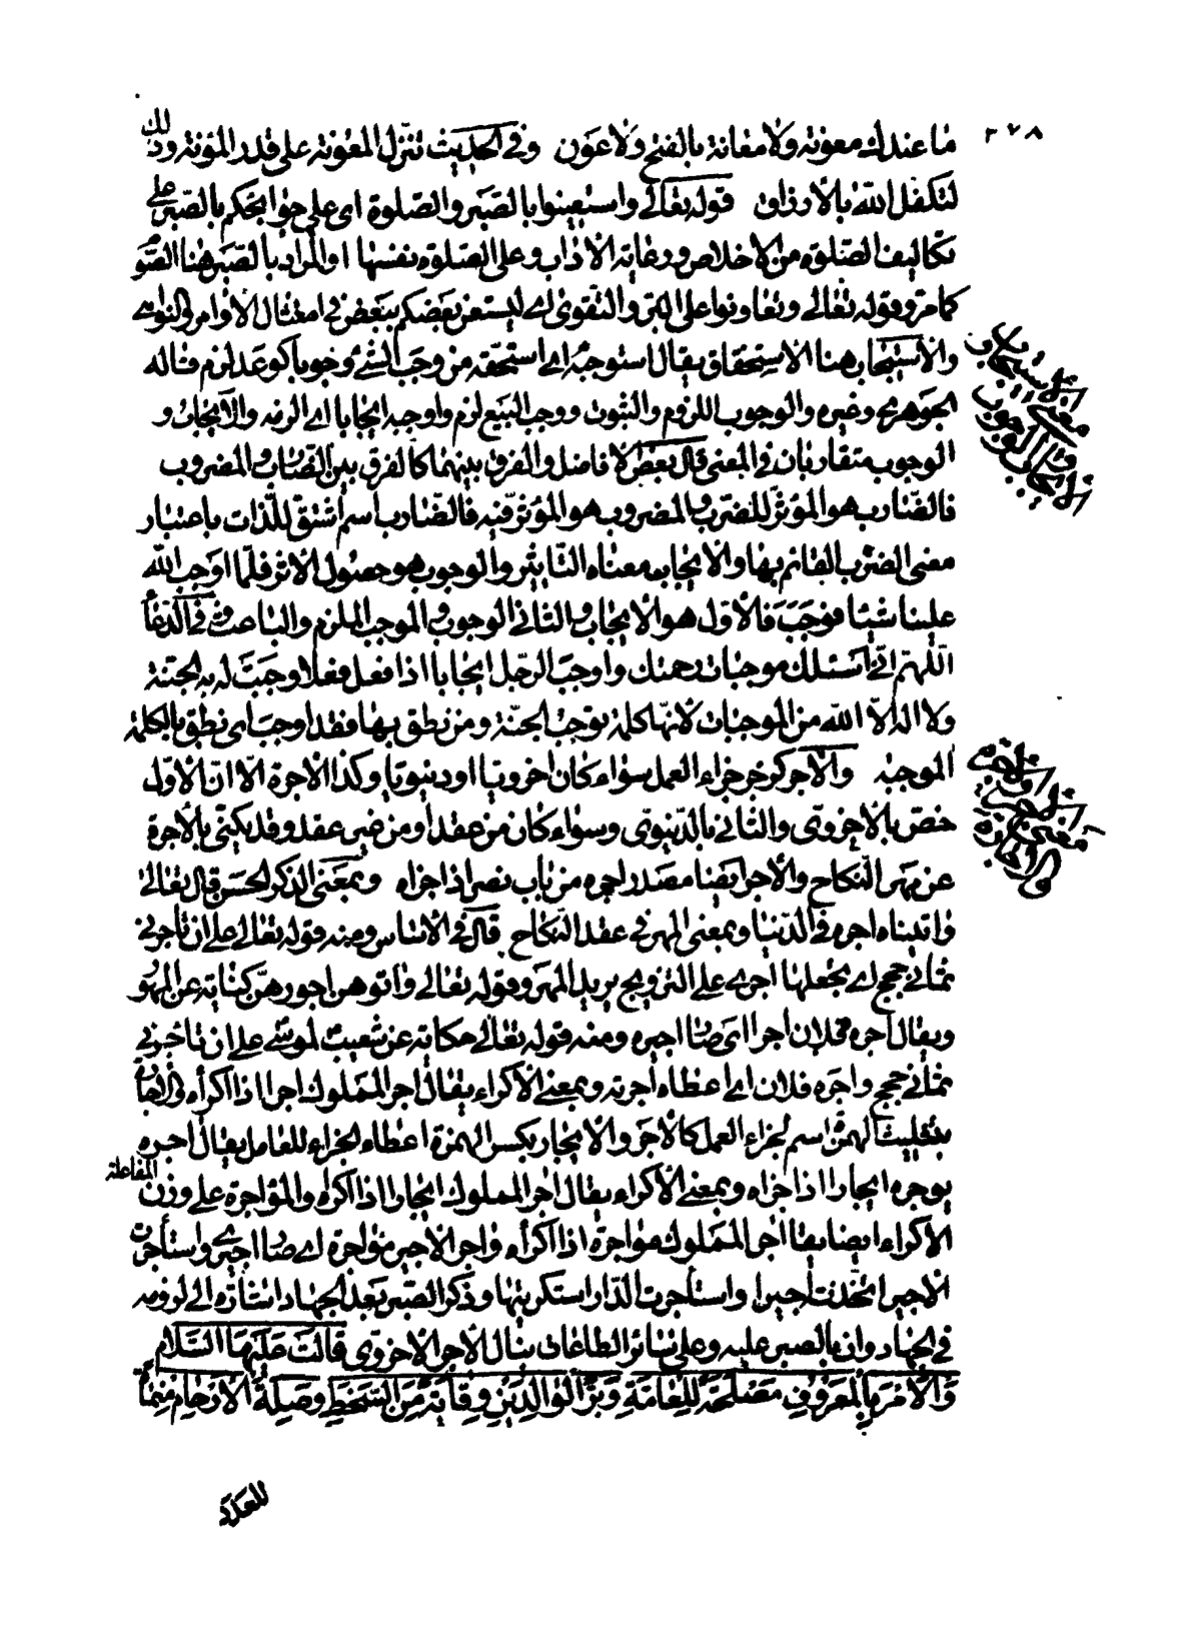 ٢٧٨
ما عندك معونة ولا معانة بالفتح ولا عون وفي الحديث تنزل المعونة على قدر المؤنة وذلك
لتكفل الله بالأرزاق قوله تعالى واستعينوا بالصبر والصلوة اى على حوائجكم بالصبر على
تكاليف الصلوة من الاخلاص ورعاية الاداب وعلى الصلوة نفسها او المراد بالصبر هنا الصو
كما مر وقوله تعالى وتعاونوا على البر والتقوى اى ليستعن بعضكم ببعض في امتثال الاوامر والنواهى
والاستيجاب هنا الاستحقاق يقال استوجبه اى استحقه من وجب الشئ وجوبا كوعد لزم قاله
الجوهرى وغيره والوجوب اللزوم والثبوت ووجب البيع لزم واوجبه ايجابا اى الزمه والايجاب و
الوجوب متقاربان في المعنى قال بعض الافاضل والفرق بينهما كالفرق بين الضارب والمضروب
فالضارب هو المؤثر للضرب والمضروب هو المؤثر فيه فالضارب اسم اشتق للذات باعتبار
معنى الضرب القائم بها والايجاب معناه التاثير والوجوب هو حصول الاثر فلما اوجب الله
علينا شيئا فوجب فالأول هو الايجاب والثاني الوجوب والموجب الملزم والباعث وفي الدعاء
اللهم انى اسئلك موجبات رحمتك واوجب الرجل ايجابا اذا فعل فعلا وجبت له به الجنة
ولا اله الا الله من الموجبات لانها كلمة توجب الجنة ومن نطق بها فقد اوجب اى نطق بالكلمة
الموجبة والأجر كزجر جزاء العمل سواء كان اخرويا او دنيويا وكذا الاجرة الا ان الاول
خص بالأخروى والثاني بالدنيوى وسواء كان من عقد أو من غير عقد وقد يكنى بالأجرة
عن مهر النكاح والأجر ايضا مصدر اجره من باب نصر اذا جزاه وبمعنى الذكر الحسن قال تعالى
واتيناه اجره في الدنيا وبمعنى المهر في عقد النكاح قال في الاساس ومنه قوله تعالى على ان تأجرنى
ثمانى حجج اى تجعلها اجرى على التزويج يريد المهر وقوله تعالى واتوهن اجورهن كناية عن المهو
ويقال اجره فلان اجرا اى صار اجيره ومنه قوله تعالى حكاية عن شعيب لموسى على ان تاجرنى
ثمانى حجج واجره فلان اى اعطاه أجرته وبمعنى الاكراء يقال اجر المملوك اجرا اذا اكراه والاجارة
بتثليث الهمزة اسم لجزاء العمل كالأجر والايجار بكسر الهمزة اعطاء الجزاء للعامل يقال اجره
يوجره ايجارا اذا جزاه وبمعنى الاكراء يقال اجر المملوك ايجارا اذا اكراه والمؤاجرة على وزن المفاعلة
الاكراء ايضا يقال اجر المملوك مؤاجرة اذا اكراه واجر الاجير مؤاجرة اى صار اجيرى واستأجرت
الاجير اتخذت أجيرا واستأجرت الدار استكريتها وذكر الصبر بعد الجهاد اشارة الى لزومه
في الجهاد وان بالصبر عليه وعلى سائر الطاعات ينال الأجر الاخروى قالت عليها السلام
والأمر بالمعروف مصلحة للعامة وبر الوالدين وقاية من السخط وصلة الأرحام منماة
للعدد
في الاستيجاب
معنى
الوجوب
الايجاب
معنى
والاجارة